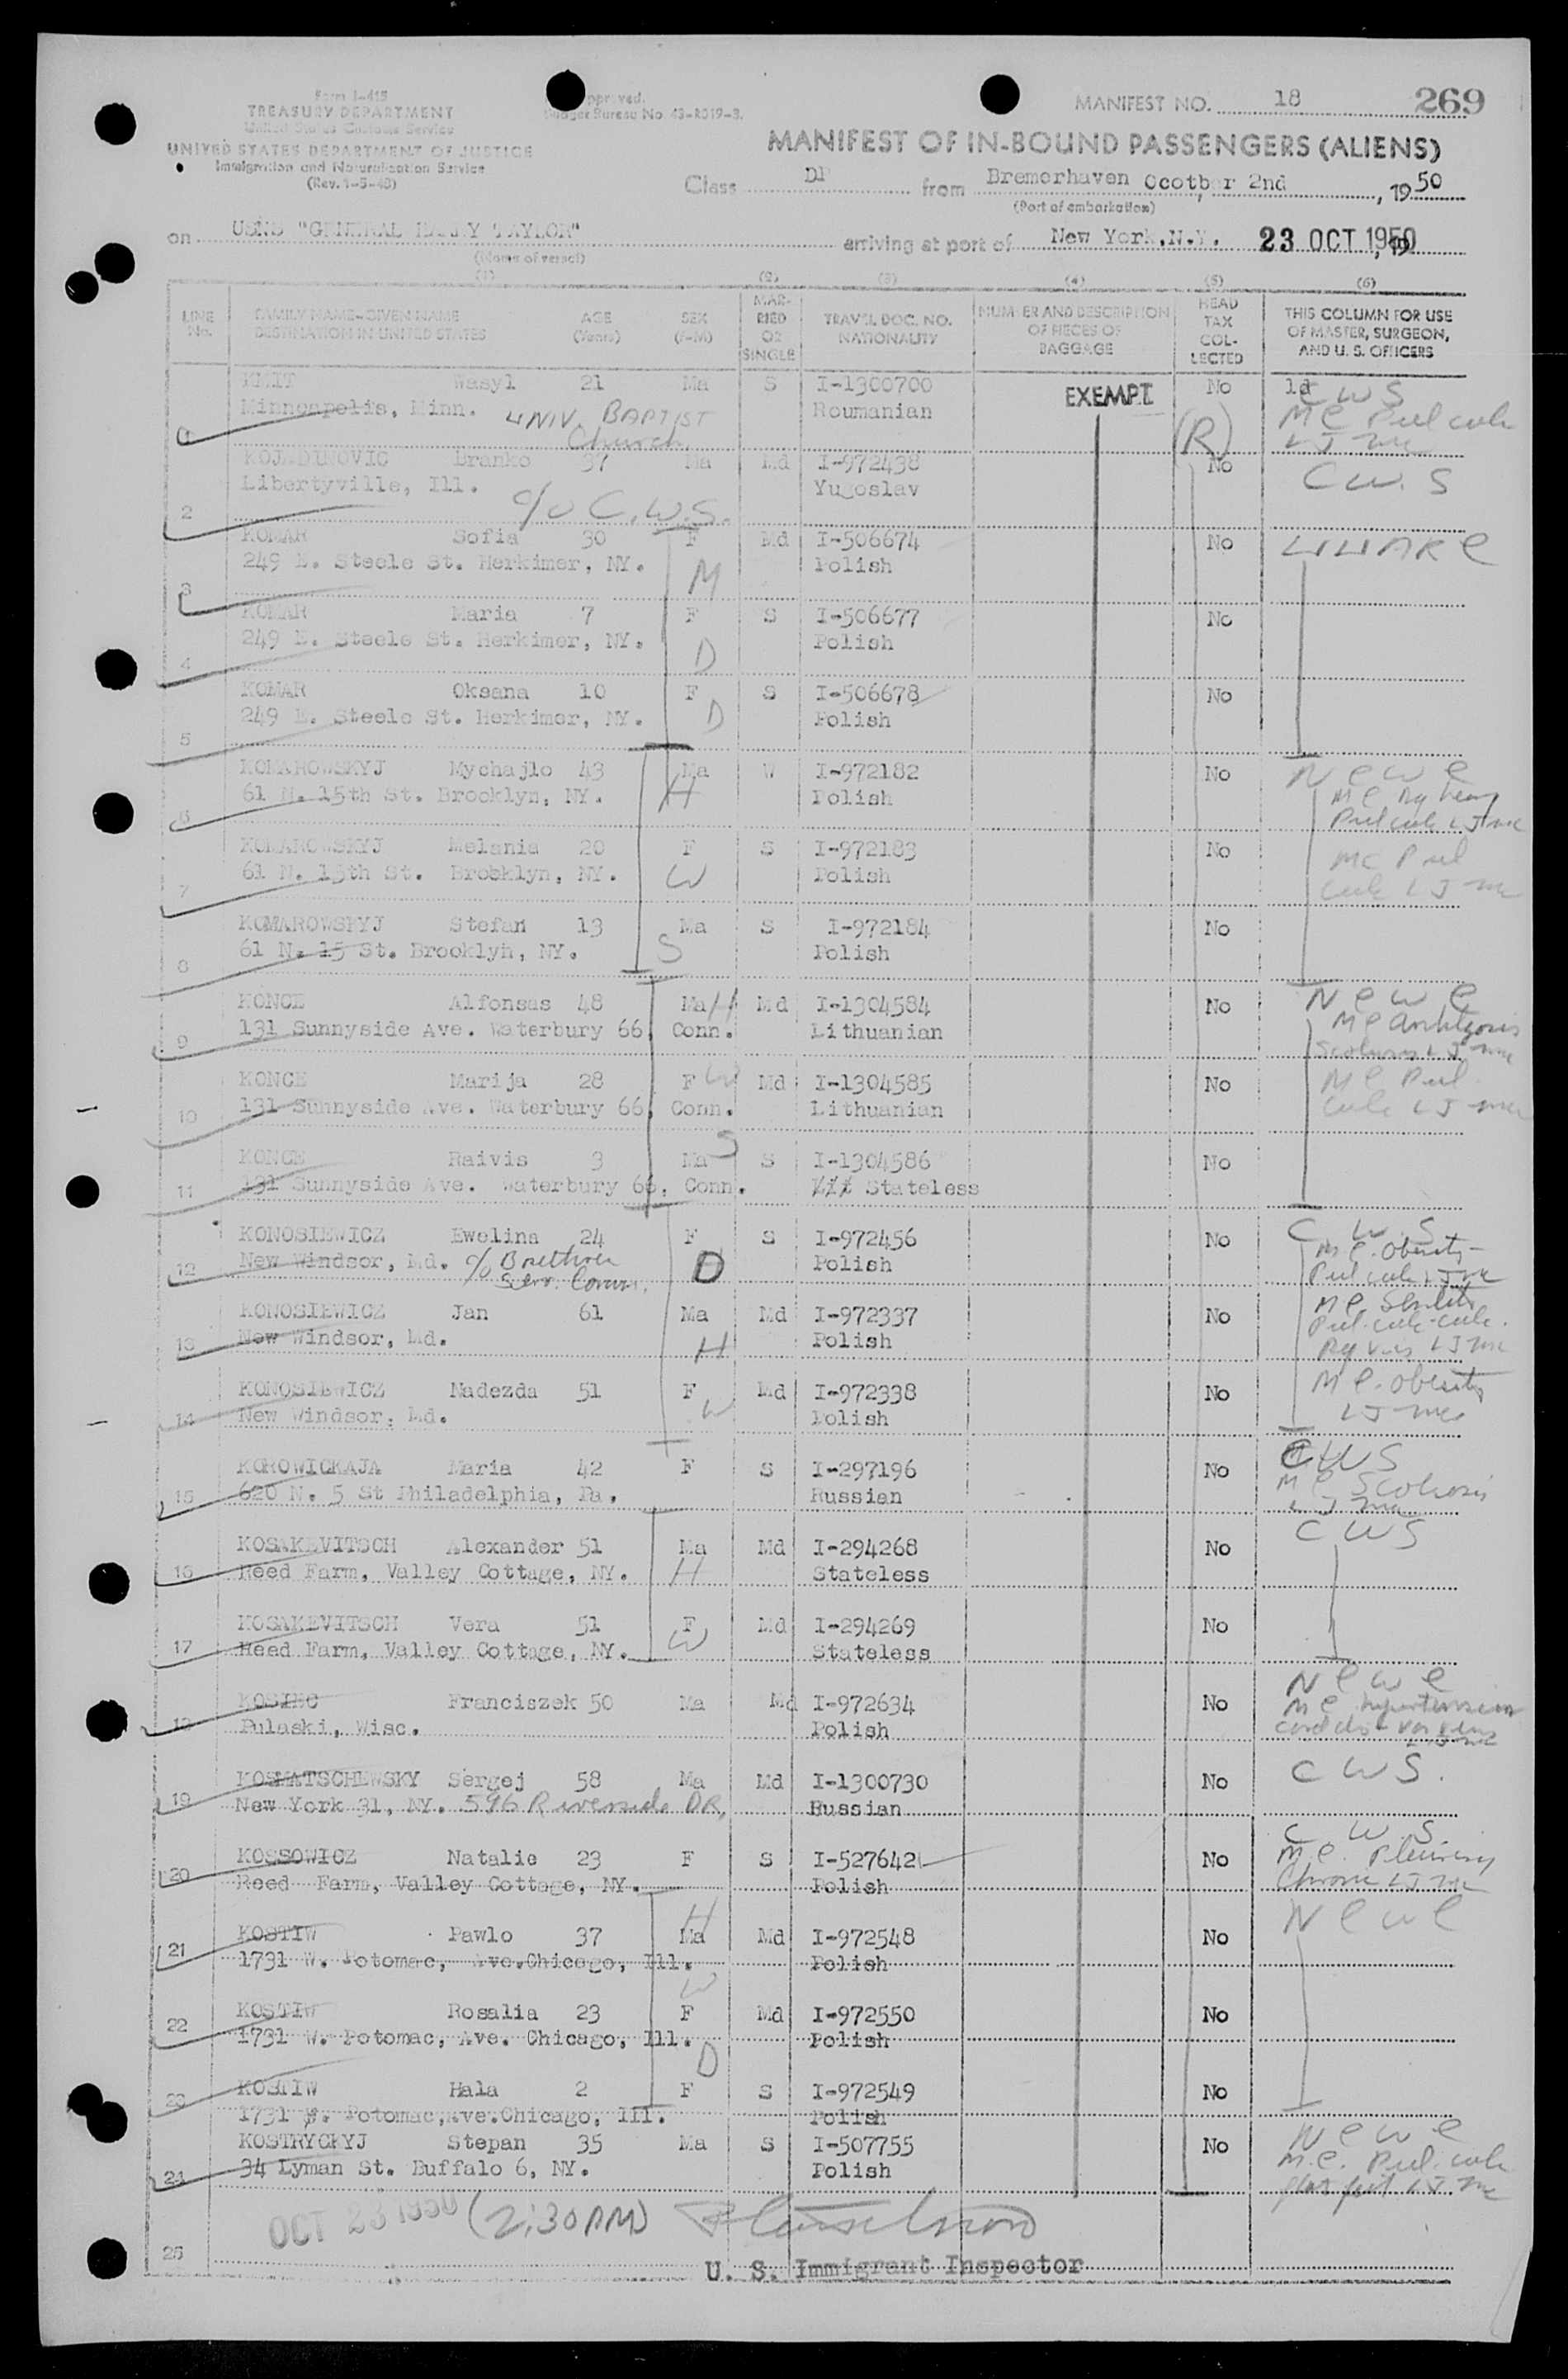 MANIFEST NO. 18 269
Form I-415
TREASURY DEPARTMENT
United States Customs Service
UNITED STATES DEPARTMENT OF JUSTICE
Immigration and Naturalization Service
(Rev. 1-5-48)
Budget Bureau No. 43-R019-3.
MANIFEST OF IN-BOUND PASSENGERS (ALIENS)
Class DP from Bremerhaven Ocotber 2nd, 1950
(Port of embarkation)
on USNS "GENERAL TAYLOR" arriving at port of New York, N.Y. 23 OCT 1950
(Name of vessel)
(1) (2) (3) (4) (5) (6)
LINE No. FAMILY NAME-GIVEN NAME DESTINATION IN UNITED STATES AGE (Years) SEX (F-M) MARRIED OR SINGLE TRAVEL DOC. NO. NATIONALITY NUMBER AND DESCRIPTION OF PIECES OF BAGGAGE HEAD TAX COLLECTED THIS COLUMN FOR USE OF MASTER, SURGEON, AND U. S. OFFICERS
KMIT Wasyl 21 Ma S I-1300700 EXEMPT No CWS
1 Minneapolis, Minn. UNIV. BAPTIST Church Roumanian (R)
Branko 37 Ma Md I-972438 No C W. S
2 Libertyville, Ill. c/o C.W.S. Yugoslav
KOMAR Sofia 30 F Md I-506674 No
3 249 E. Steele St. Herkimer, NY. M Polish
KOMAR Maria 7 F S I-506677 No
4 249 E. Steele St. Herkimer, NY. D Polish
KOMAR Oksana 10 F S I-506678 No
5 249 E. Steele St. Herkimer, NY. D Polish
KOMAROWSKYJ Mychajlo 43 Ma W I-972182 No
6 61 N. 15th St. Brooklyn, NY. H Polish
KOMAROWSKYJ Melania 20 F S I-972183 No
7 61 N. 15th St. Brooklyn, NY. W Polish
KOMAROWSKYJ Stefan 13 Ma S I-972184 No
8 61 N. 15 St. Brooklyn, NY. S Polish
KONCE Alfonsas 48 Ma H Md I-1304584 No
9 131 Sunnyside Ave. Waterbury 66, Conn. Lithuanian
KONCE Marija 28 F W Md I-1304585 No
10 131 Sunnyside Ave. Waterbury 66, Conn. Lithuanian
KONCE Raivis 3 Ma S S I-1304586 No
11 131 Sunnyside Ave. Waterbury 66, Conn. Stateless
KONOSIEWICZ Ewelina 24 F S I-972456 No C W S
12 New Windsor, Md. c/o Brethren Serv. Comm. D Polish
KONOSIEWICZ Jan 61 Ma Md I-972337 No
13 New Windsor, Md. H Polish
KONOSIEWICZ Nadezda 51 F Md I-972338 No
14 New Windsor, Md. W Polish
KOROWICKAJA Maria 42 F S I-297196 No CWS
15 620 N. 5 St Philadelphia, Pa. Russian
KOSAKEVITSCH Alexander 51 Ma Md I-294268 No C W S
16 Reed Farm, Valley Cottage, NY. H Stateless
KOSAKEVITSCH Vera 51 F Md I-294269 No
17 Reed Farm, Valley Cottage, NY. W Stateless
Franciszek 50 Ma Md I-972634 No
18 Pulaski, Wisc. Polish
KOSMATSCHEWSKY Sergej 58 Ma Md I-1300730 No C W S.
19 New York 31, NY. 596 Riverside DR, Russian
KOSSOWICZ Natalie 23 F S I-527642 No C W. S.
20 Reed Farm, Valley Cottage, NY. Polish
KOSTIW Pawlo 37 H Ma Md I-972548 No
21 1731 W. Potomac, Ave. Chicago, Ill. Polish
KOSTIW Rosalia 23 W F Md I-972550 No
22 1731 W. Potomac, Ave. Chicago, Ill. Polish
KOSTIW Hala 2 D F S I-972549 No
23 1731 W. Potomac, Ave. Chicago, Ill. Polish
Stepan 35 Ma S I-507755 No
24 34 Lyman St. Buffalo 6, NY. Polish
OCT 23 1950 (2:30 PM)
25 U. S. Immigrant Inspector